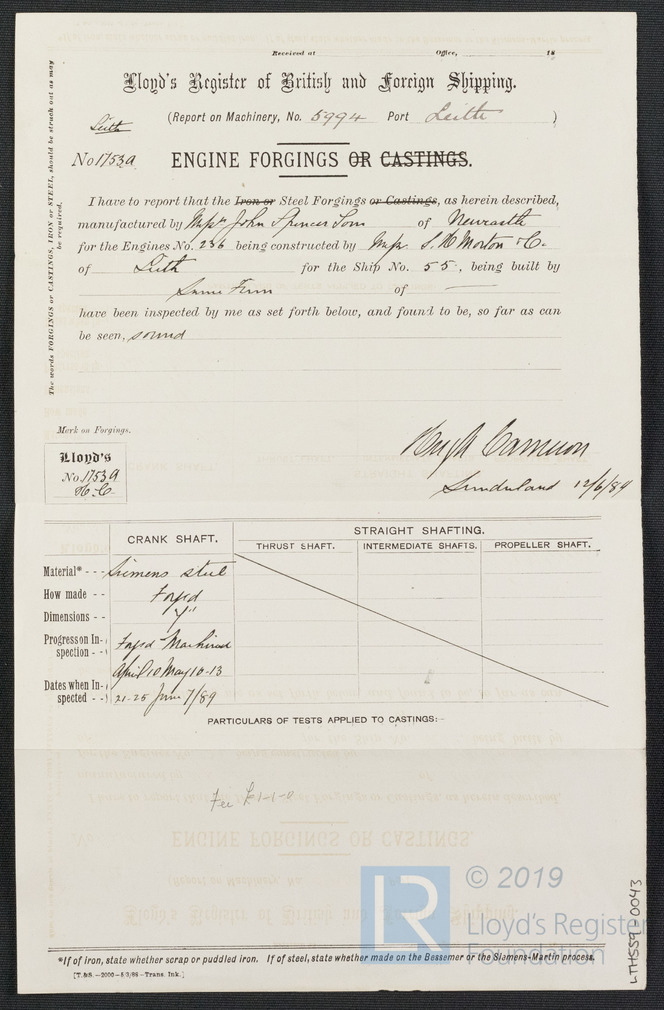 Received at Office, 18
Lloyd's Register of British and Foreign Shipping.
(Report on Machinery, No. 5994 Port Leith )
Leith
No 1753a ENGINE FORGINGS OR CASTINGS.
The words FORGINGS or CASTINGS, IRON or STEEL, should be struck out as may be required.
I have to report that the Iron or Steel Forgings or Castings, as herein described,
manufactured by Messrs John Spencer Sons of Newcastle
for the Engines No. 236 being constructed by Messrs S. H Morton & Co.
of Leith for the Ship No. 55, being built by
Same Firm of —
have been inspected by me as set forth below, and found to be, so far as can
be seen, sound
Mark on Forgings.
Hugh Cameron
Lloyd's
No. 1753a
H.C.
Sunderland 12/6/89
CRANK SHAFT. STRAIGHT SHAFTING.
THRUST SHAFT. INTERMEDIATE SHAFTS. PROPELLER SHAFT.
Material* - - Siemens steel
How made - - Forged
Dimensions - - 7"
Progress on Inspection - - Forged Machined
Dates when Inspected - - April 10 May 10-13
21-25 June 7/89
PARTICULARS OF TESTS APPLIED TO CASTINGS:-
Fee £1-1-0
© 2019
LR
Lloyd's Register
Foundation
LTH559-0043
*If of iron, state whether scrap or puddled iron. If of steel, state whether made on the Bessemer or the Siemens-Martin process.
[T.&S.—2000—5/3/88—Trans. Ink.]